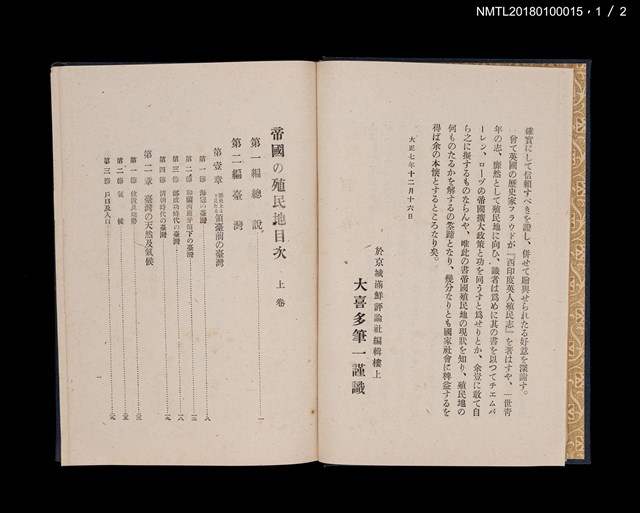 NMTL20180100015，1／2
確實にして信賴すべきを證し、併せて贈與せられたる好意を深謝す。
曾て英國の歷史家フラウドが『西印度英人殖民志』を著はすや、一世靑
年の志、靡然として殖民地に向ひ、識者は爲めに其の書を以つてチエムバ
ーレン、ローヅの帝國擴大政策と功を同うすと爲せりとか、余豈に敢て自
ら之に擬するものならんや、唯此の書帝國殖民地の現狀を知り、殖民地の
何ものたるかを解するの筌蹄となり、幾分なりとも國家社會に裨益するを
得ば余の本懷とするところなり矣。
大正七年十二月十六日
於京城滿鮮評論社編輯樓上
大喜多筆一謹識
帝國の殖民地目次 上卷
第一編 總說 一
第二編 臺灣
第壹章 領臺前の臺灣
第一節 海寇の臺灣 八
第二節 和蘭西班牙領下の臺灣
第三節 鄭成功時代の臺灣
第四節 淸朝時代の臺灣
第二章 臺灣の天然及氣候
第一節 位置及地勢
第二節 氣候
第三節 戶口及人口
一